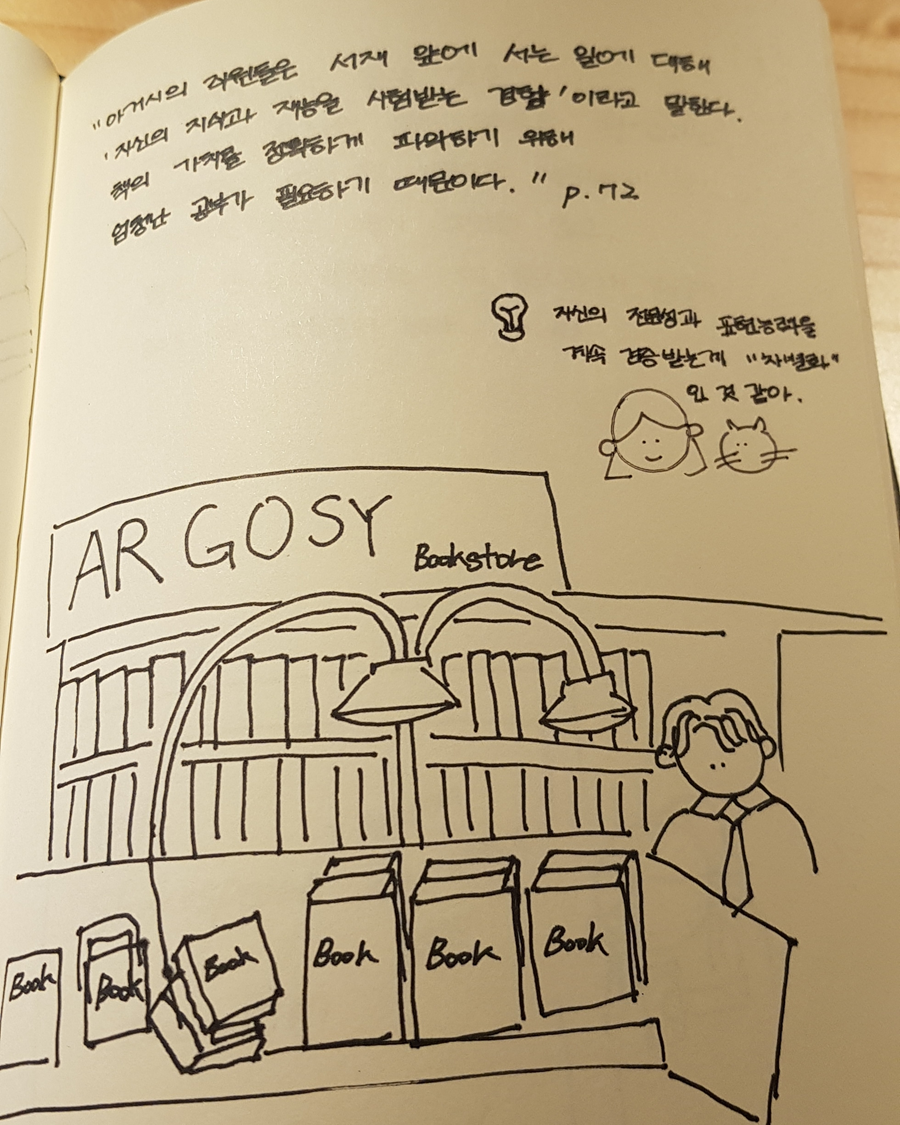 "아거시의 직원들은 서재 앞에 서는 일에 대해
'자신의 지식과 재능을 시험받는 경험'이라고 말한다.
책의 가치를 정확하게 파악하기 위해
엄청난 공부가 필요하기 때문이다." p.72
자신의 전문성과 표현능력을
계속 검증받는게 "차별화"
인 것 같아.
ARGOSY
Bookstore
Book
Book
Book
Book
Book
Book